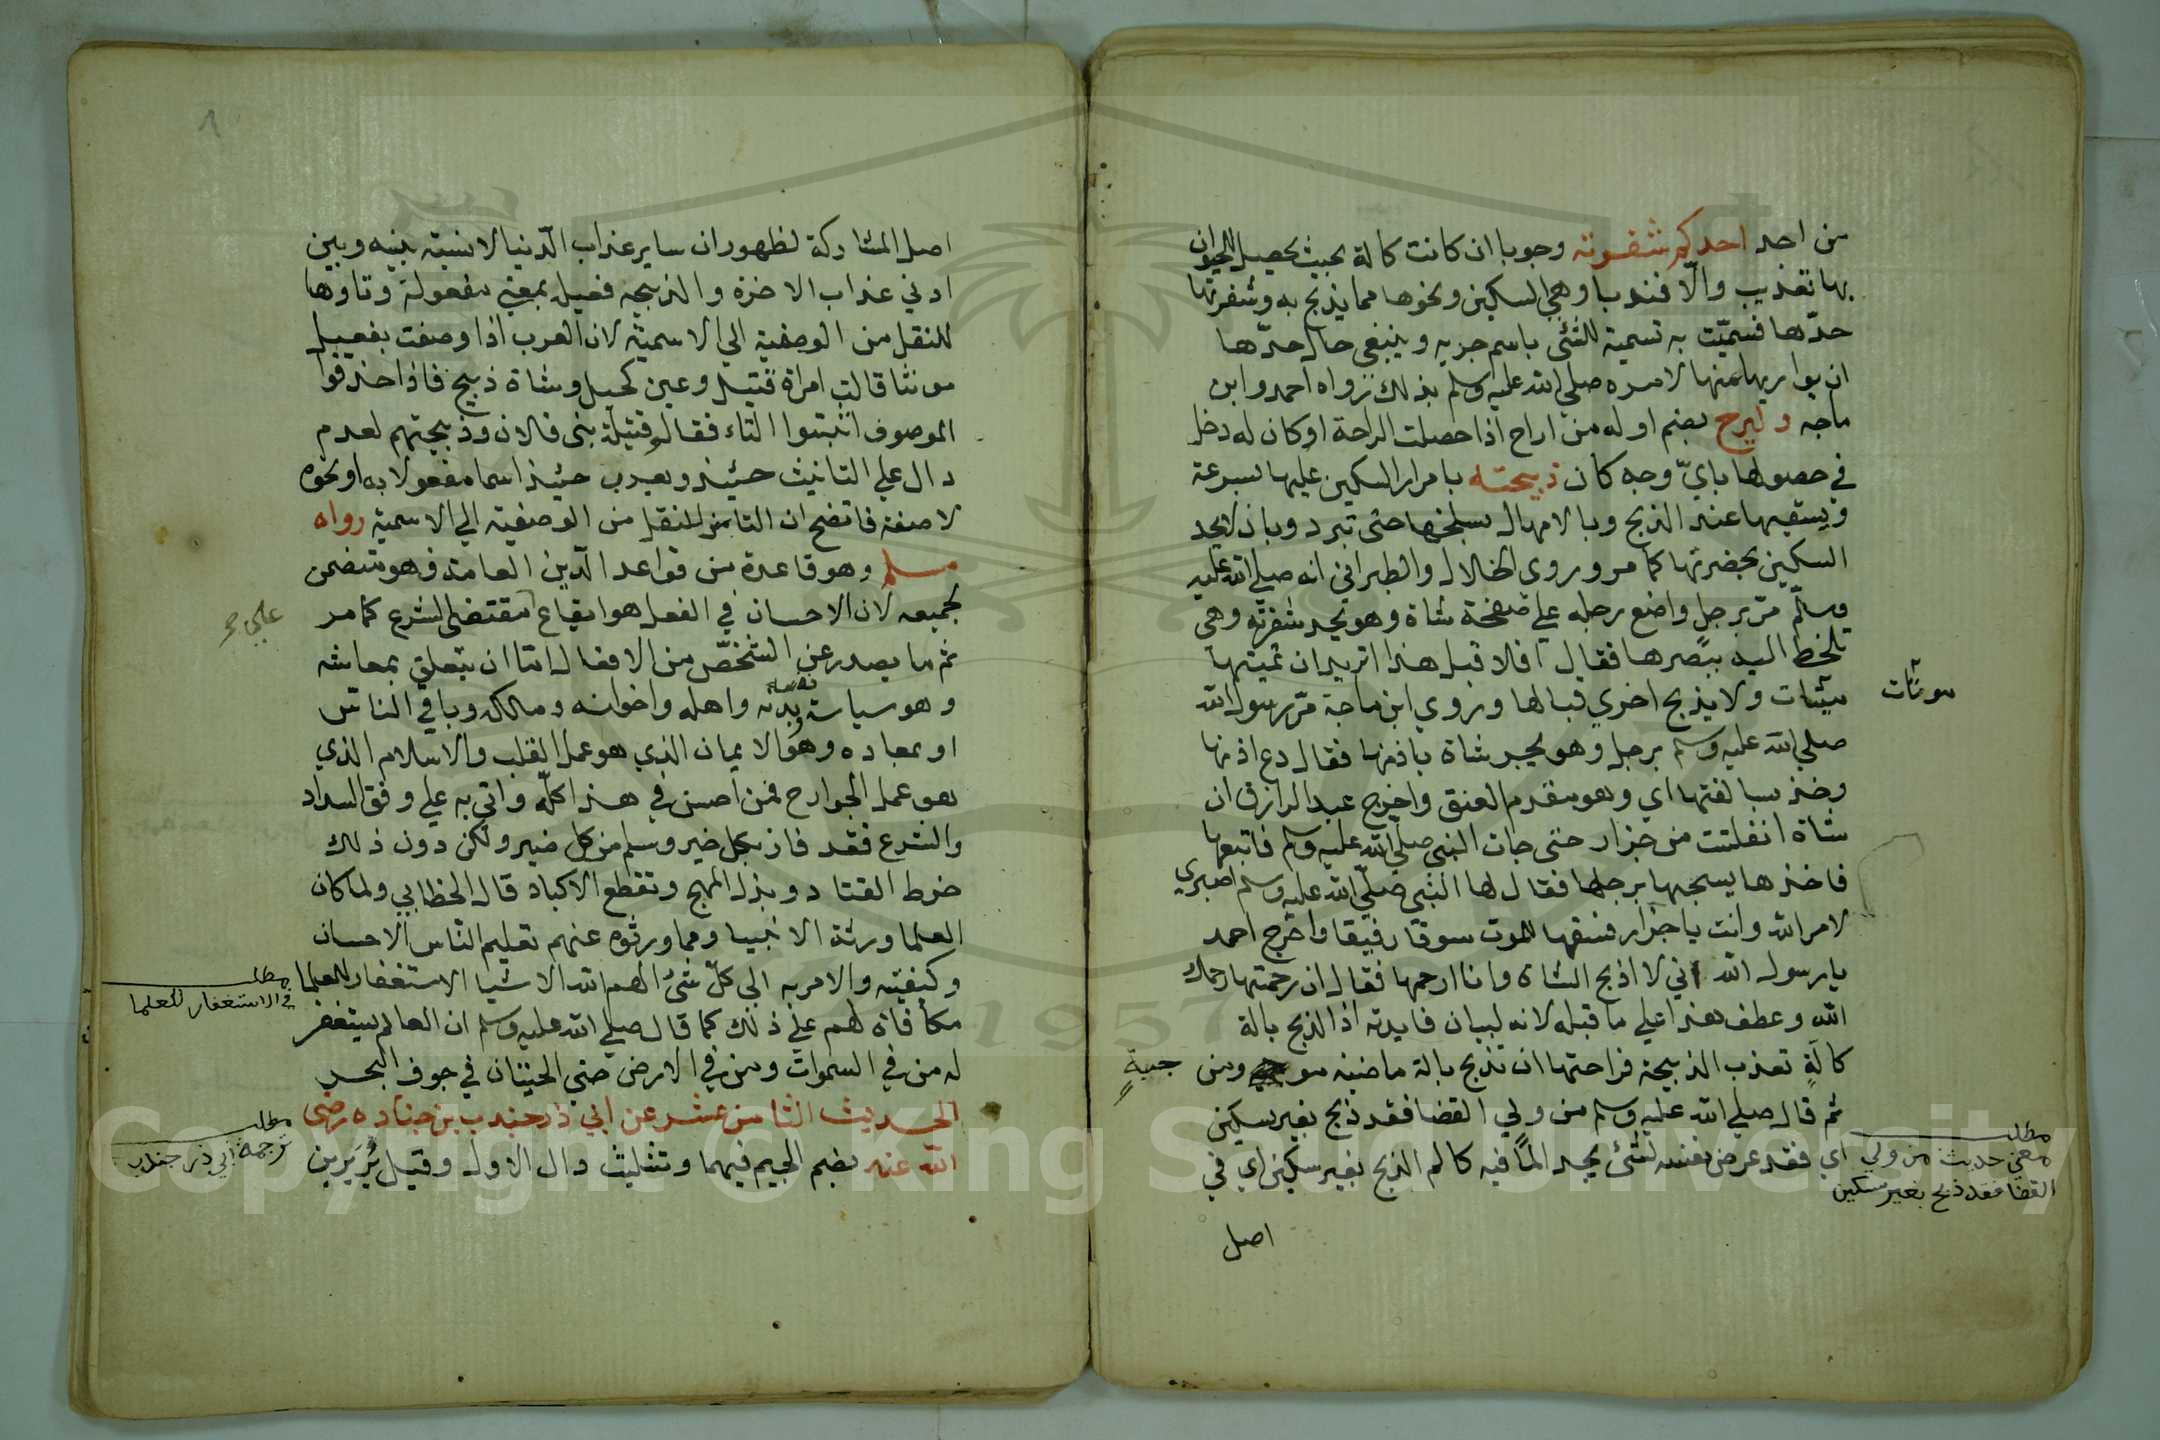 من احد احدكم شفرته وجوبا ان كانت كالة بحيث يحصل للحيوان
بها تعذيب والّا فندبا وهي السكين ونحوها مما يذبح به وشفرتها
حدّها فسميّت به تسمية للشئ باسم جزيه وينبغي حال حدّها
ان يواريها منها لامره صلي الله عليه وسلم بذلك رواه احمد وابن
ماجه وليرح بضم اوله من اراح اذا حصلت الراحة او كان له دخل
في حصولها بايّ وجه كان ذبيحته بامرار السكين عليها بسرعة
ويسقيها عند الذبح وبالامهال بسلخها حتى تبرد وبان لا يحد
السكين بحضرتها كما مر وروي الخلال والطبراني انه صلي الله عليه
وسلّم مرّ برجل واضع رجله علي صفحة شاة وهو يحد شفرته وهي
تلحظ اليه ببصرها فقال افلا قبل هذا اتريد ان تميتها
ميتات ولا يذبح اخري قبالها وروي ابن ماجة مرّ رسول الله
موتات
صلي الله عليه وسلم برجل وهو يجر شاة باذنها فقال دع اذنها
وخذ سالفتها اي وهو مقدم العنق واخرج عبد الرازق ان
شاة انفلتت من جزار حتى جات النبي صلي الله عليه وسلم فاتبعها
فاخذها يسحبها برجلها فقال لها النبي صلّي الله عليه وسلم اصبري
لامر الله وانت يا جزار فسقها للموت سوقا رفيقا واخرج احمد
يا رسول الله اني لا اذبح الشاة وانا ارحمها فقال ان رحمتها رحمك
الله وعطف هذا علي ما قبله لانه لبيان فايدته اذ الذبح بالة
كالّةٍ تعذب الذبيحة فراحتها ان تذبح بالة ماضية مو ومن
جبةٍ
ثم قال صلي الله عليه وسلم من ولي القضا فقد ذبح بغير سكين
اي فقد عرض نفسه لشئ يجد المًا فيه كالم الذبح بغير سكين اي في
مطلب
معني حديث من ولي
القضا فقد ذبح بغير سكين
اصل
اصل المشاركة لظهور ان ساير عذاب الّدنيا لا نسبة بينه وبين
ادني عذاب الاخرة والذبيحه فعيل بمعني مفعولة وتاوها
للنقل من الوصفية الي الاسمية لان العرب اذا وصفت بفعيل
مونثا قالت امراة قتيل وعين كحيل وشاة ذبيح فاذا حذفوا
الموصوف اثبتوا التاء فقالو قتيلة بني فلان وذبيحتهم لعدم
دال علي التانيث حينئذ ويعرب حينئذ اسما مفعولا به او نحوه
لا صفة فاتضح ان التا من للنقل من الوصفية الي الاسمية رواه
مسلم وهو قاعدة من قواعد الّدين العامة فهو متضمن
لجميعه لان الاحسان في الفعل هو ايقاع مقتضي الشرع كما مر
ثم ما يصدر عن الشخصّ من الافعال امّا ان يتعلق بمعاشه
وهو سياسة نفسه وبدنه واهله واخوانه ومالكه وباقي الناس
او بمعاده وهو الايمان الذي هو عمل القلب والاسلام الذي
هو عمل الجوارح فمن احسن في هذا كلّه واتي به علي وفق السداد
والشرع فقد فاز بكل خير وسلم من كل ضير ولكن دون ذلك
خرط القتاد وبذل المهج وتقطع الاكباد قال الخطابي ولما كان
العلما ورثة الانبيا ومما ورثوه عنهم تعليم الناس الاحسان
وكيفيته والامر به الي كلّ شئ الهم الله الاشيا الاستغفار للعلما
مكافاة لهم علي ذلك كما قال صلي الله عليه وسلم ان العالم يستغفر
له من في السموات ومن في الارض حتي الحيتان في جوف البحر
الحديث الثامن عشر عن ابي ذر جندب بن جناده رضي
الله عنه بضم الجيم فيهما وتثليث دال الاول وقيل بُرَير بن
مطلب
في الاستغفار للعلما
مطلب
ترجمة ابي ذر جندب
Copyright © King Saud University
1957